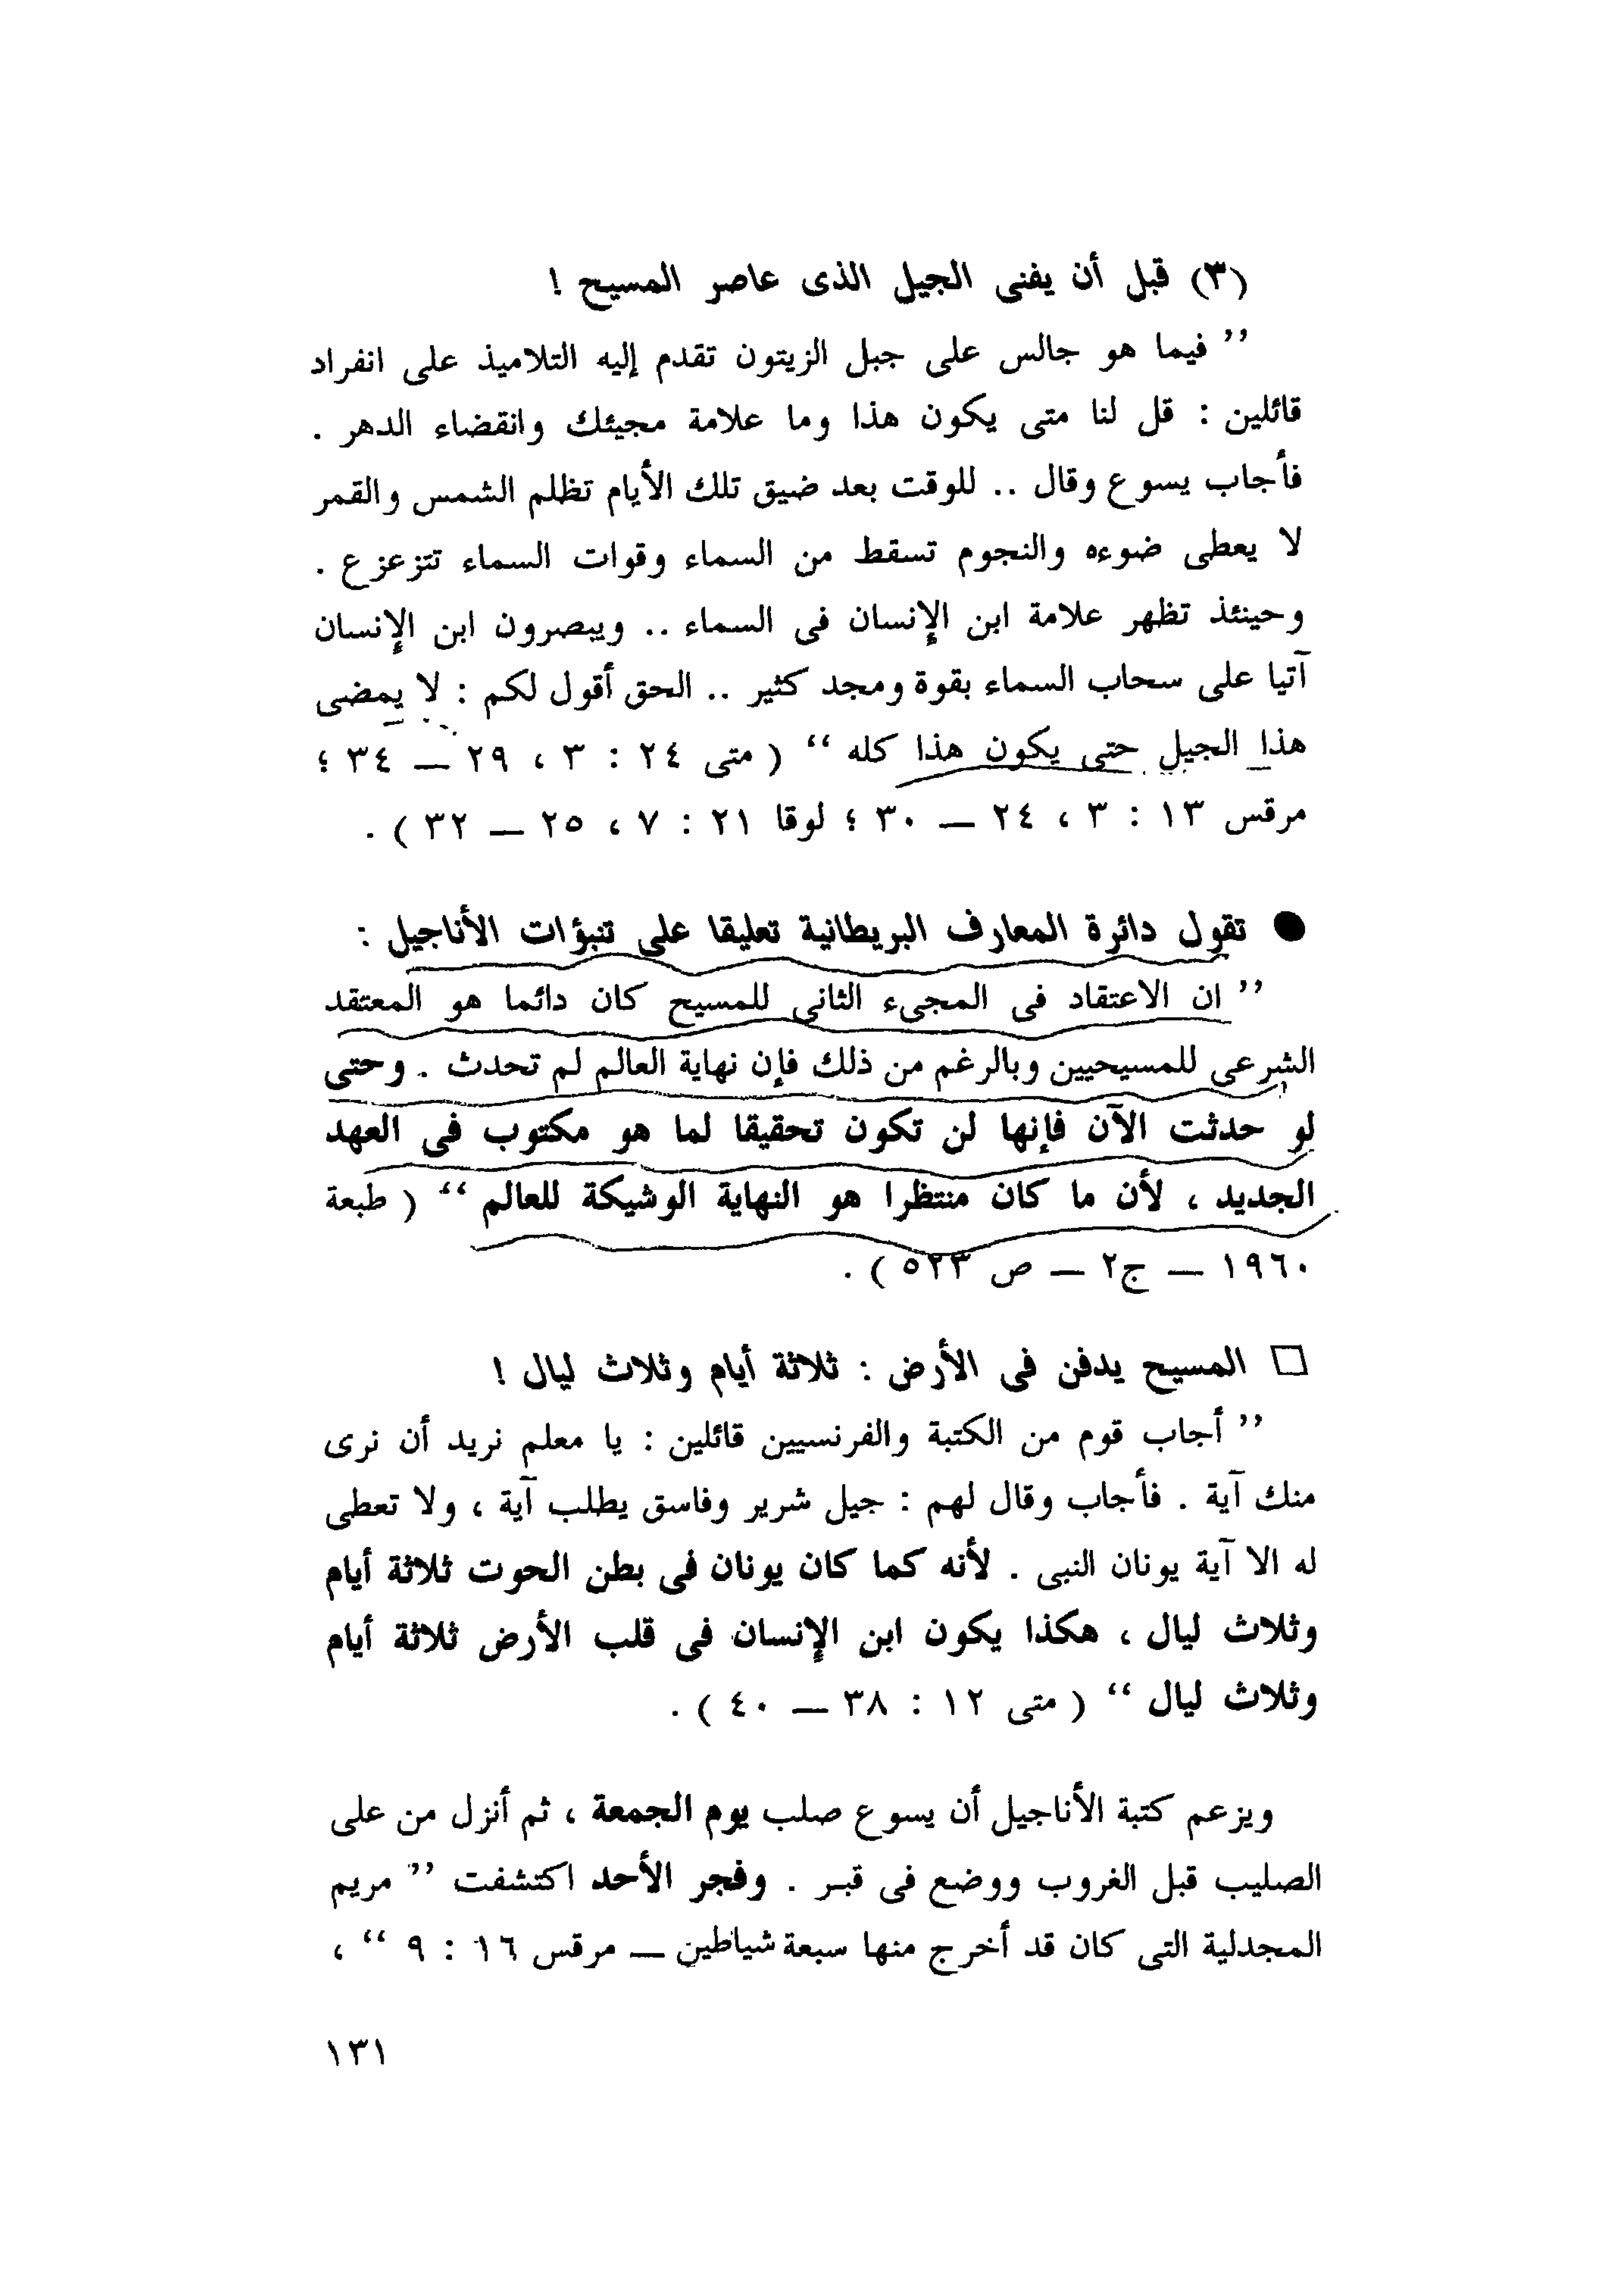 (٣) قبل أن يفنى الجيل الذى عاصر المسيح !
’’ فيما هو جالس على جبل الزيتون تقدم إليه التلاميذ على انفراد
قائلين : قل لنا متى يكون هذا وما علامة مجيئك وانقضاء الدهر .
فأجاب يسوع وقال .. للوقت بعد ضيق تلك الأيام تظلم الشمس والقمر
لا يعطى ضوءه والنجوم تسقط من السماء وقوات السماء تتزعزع .
وحينئذ تظهر علامة ابن الإنسان فى السماء .. ويبصرون ابن الإنسان
آتيا على سحاب السماء بقوة ومجد كثير .. الحق أقول لكم : لا يمضى
هذا الجيل حتى يكون هذا كله ‘‘ ( متى ٢٤ : ٣ ، ٢٩ ــ ٣٤ ؛
مرقس ١٣ : ٣ ، ٢٤ ــ ٣٠ ؛ لوقا ٢١ : ٧ ، ٢٥ ــ ٣٢ ) .
● تقول دائرة المعارف البريطانية تعليقا على تنبؤات الأناجيل :
’’ ان الاعتقاد فى المجىء الثانى للمسيح كان دائما هو المعتقد
الشرعى للمسيحيين وبالرغم من ذلك فإن نهاية العالم لم تحدث . وحتى
لو حدثت الآن فإنها لن تكون تحقيقا لما هو مكتوب فى العهد
الجديد ، لأن ما كان منتظرا هو النهاية الوشيكة للعالم ‘‘ ( طبعة
١٩٦٠ ــ ج٢ ــ ص ٥٢٣ ) .
□ المسيح يدفن فى الأرض : ثلاثة أيام وثلاث ليال !
’’ أجاب قوم من الكتبة والفرنسيين قائلين : يا معلم نريد أن نرى
منك آية . فأجاب وقال لهم : جيل شرير وفاسق يطلب آية ، ولا تعطى
له الا آية يونان النبى . لأنه كما كان يونان فى بطن الحوت ثلاثة أيام
وثلاث ليال ، هكذا يكون ابن الإنسان فى قلب الأرض ثلاثة أيام
وثلاث ليال ‘‘ ( متى ١٢ : ٣٨ ــ ٤٠ ) .
ويزعم كتبة الأناجيل أن يسوع صلب يوم الجمعة ، ثم أنزل من على
الصليب قبل الغروب ووضع فى قبر . وفجر الأحد اكتشفت ’’ مريم
المجدلية التى كان قد أخرج منها سبعة شياطين ــ مرقس ١٦ : ٩ ‘‘ ،
١٣١